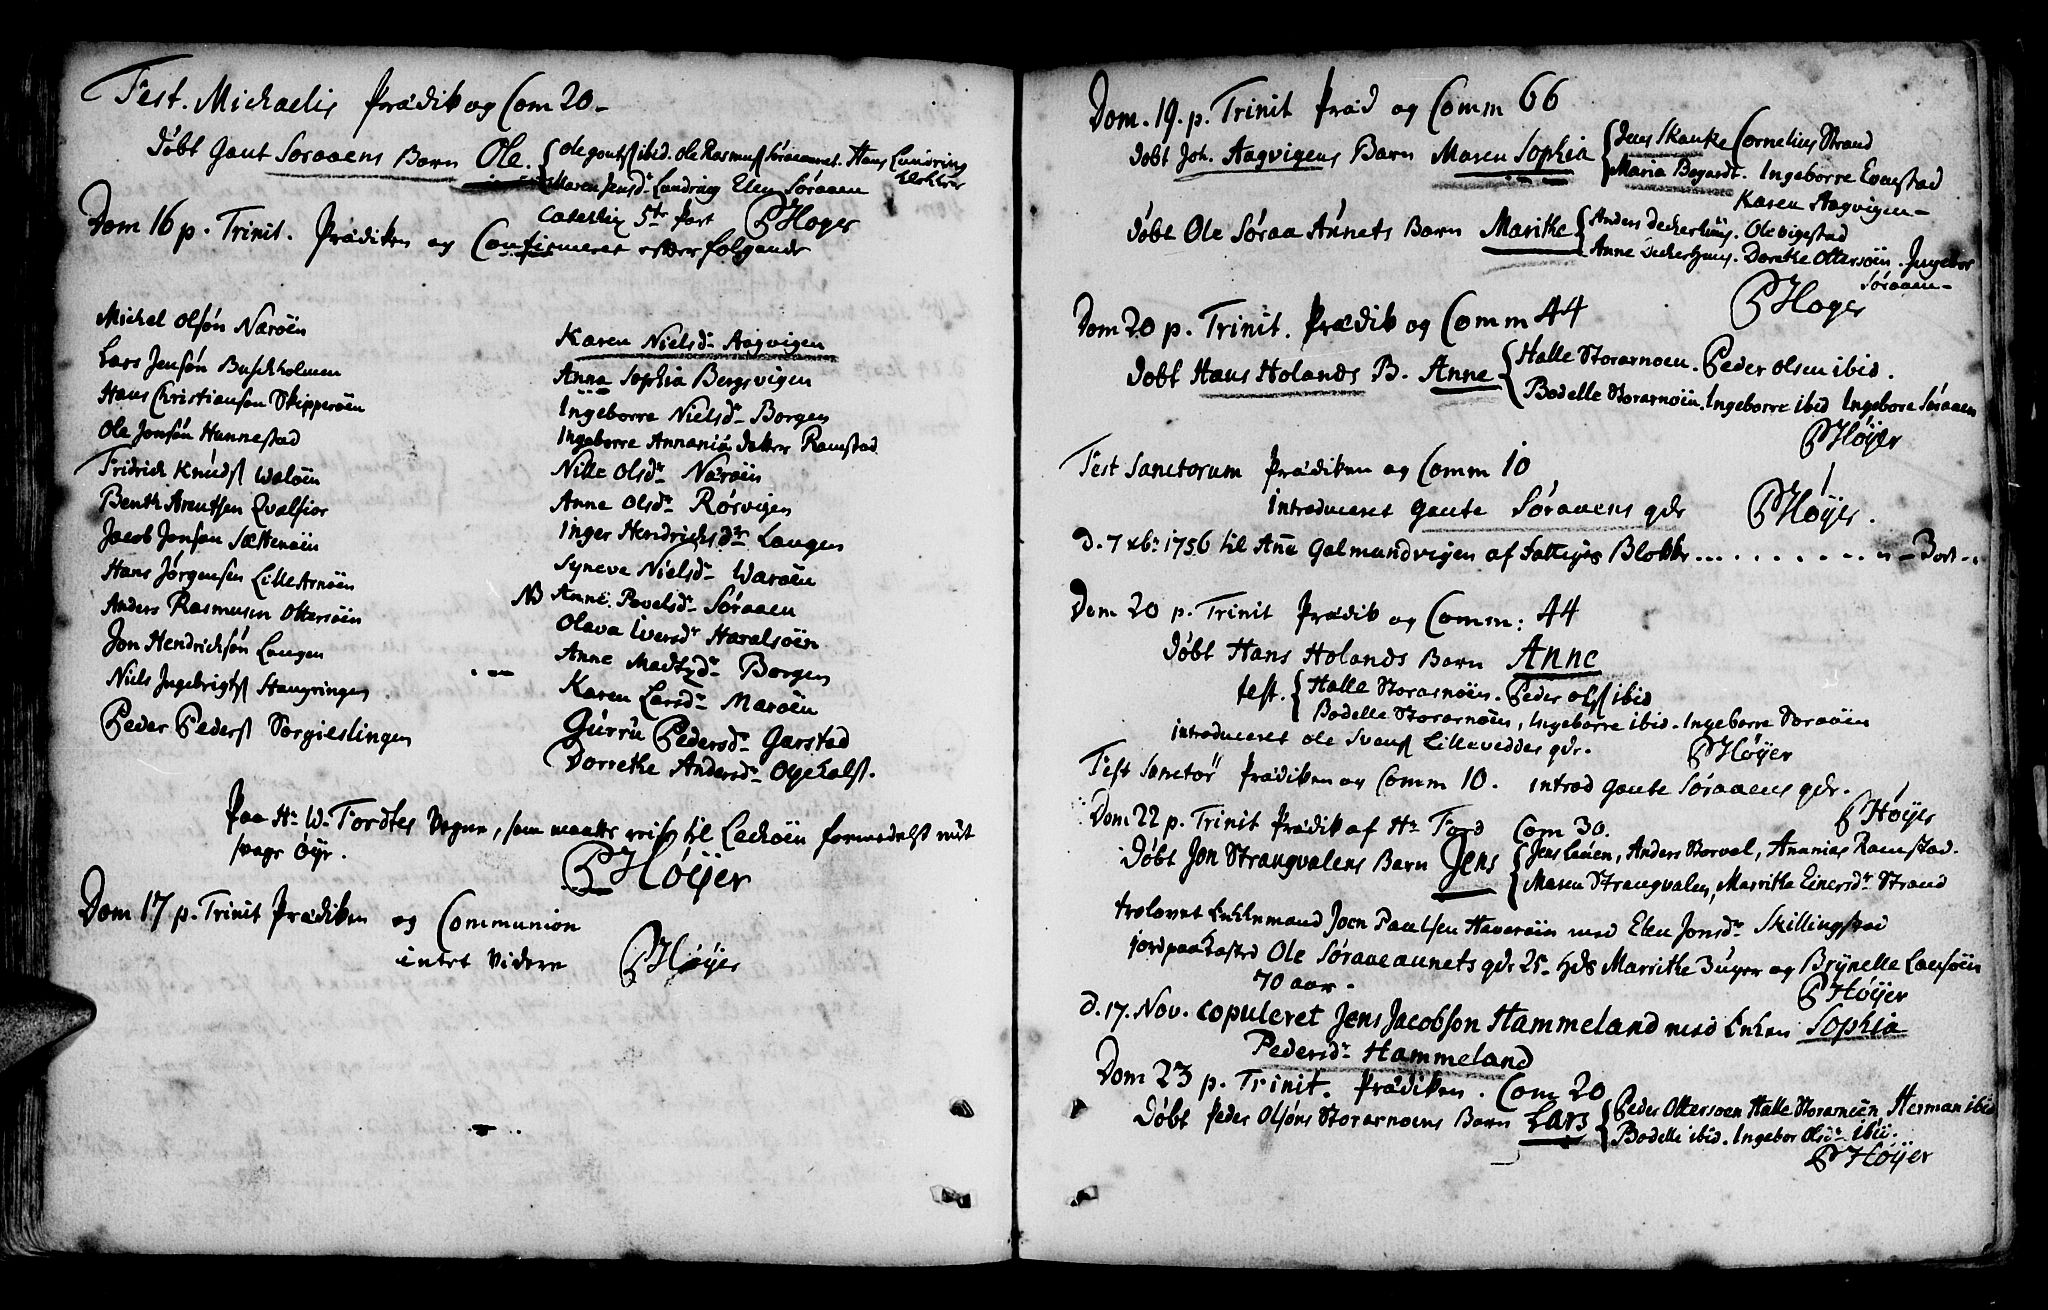 Fest. Michaelis Prædik og Com 20-
Døbt Gaut Soraaens Barn Ole. { Ole gouts ibid. Ole Rasmus Søraaunet. Hans Lundring
Maren Jensdr Lundring Elen Søraaen Klokker
5te Part PHøyer
Dom 16 p. Trinit. Prædiken og Confirmeret efterfølgende
Michel Olsøn Nærøen
Lars Jensøn Buschholmen
Hans Christiansen Skipperøen
Ole Jonsøn Hunnestad
Fridrich Knuds Waløen
Benth Arentsen Qvalfior
Jacob Jonsøn Sættenøen
Hans Jørgensen Lille Arnøen
Anders Rasmusen Ottersøen
Jon Hendrichsøn Laugen
Niels Ingebrigts Haugringen
Peder Peders Sørgieslingen
Karen Nielsd. Aagvigen
Anna Sophia Bergsvigen
Ingeborre Nielsd. Borgen
Ingeborre Annania datter Ramstad
Nille Olsd. Nærøen
Anne Olsd. Rørvigen
Inger Hendrichsdr Laugen
Syneve Nielsd. Warøen
NB Anne Povelsd. Søraaen
Olava Iversdr Haralsøen
Anne Madtzdr Borgen
Karen Larsd. Marøen
Gurru Pedersd. Garstad
Dorrethe Andersd. Ogehalsf.
Paa Hr W. Fordtes Vegne, som maatte reise til Leckøen formedelst mit
svage Øye.
PHøyer
Dom 17 p. Trinit Prædiken og Communion
intet Videre PHøyer
Dom. 19. p. Trinit Præd og Comm 66
Døbt Joh. Aagvigens Barn Maren Sophia { Jens Skanke Cornelius Strand
Maria Bogardt. Ingeborre Evenstad
Karen Aagvigen-
Døbt Ole Søraa Aunets Barn Marithe { Anders Deckerhuus. Ole vigestad
Anne Deckerhuus. Dorethe Ottersøen. Ingebor
Søraaen-
PHøyer
Dom 20 p. Trinit. Prædik og Comm 44
Døbt Hans Holands B. Anne { Halle Storarnoen. Peder Olsen ibid.
Bodelle Storarnøen. Ingeborre ibid Ingebore Søraaen
PHøyer
Fest Sanctorum Prædiken og Comm 10
Introduceret Gaute Søraaens qde PHøyer.
d. 7 xbr 1756 til Ane Galmandvigen af Fattiges Blokke . . . . . . . . . n - 3 ort - .
Dom 20 p. Trinit Prædik og Comm: 44
Døbt Hans Holands Barn Anne
test. { Halle Storarnøen. Peder Ols ibid
Bodelle Storarnøen, Ingeborre ibid. Ingeborre Soraøen
introduceret Ole Svens Lilleveddes qde. PHøyer
Fest Sanctor Prædiken og Comm 10. introd Gaute Søraaens qde.
PHøyer
Dom 22 p. Trinit Prædik af Hr Ford Com 30.
Døbt Jon Strangvalens Barn Jens { Jens Leuen, Anders Storval, Ananias Ramstad.
Maren Strangvalen, Marrithe Einersdr Strand
trolovet Enkemand Joen Paulsen Haverøen med Elen Jonsdr Skillingstad
jordpaakasted Ole Søraaeaunets qde 25. Marrithe 3 uger og Brynelle Lauføen
70 aar. PHøyer
d. 17. Nov. copuleret Jens Jacobson Hammeland med Enken Sophia
Pedersdr Hammeland
Dom 23 p. Trinit. Prædiken. Com 20
Døbt Peder Olsøns Storarnoens Barn Lars { Peder Ottersoen Halle Storarnøen Herman ibid
Bodelle ibid. Ingebor Olsdr ibid.
PHøyer